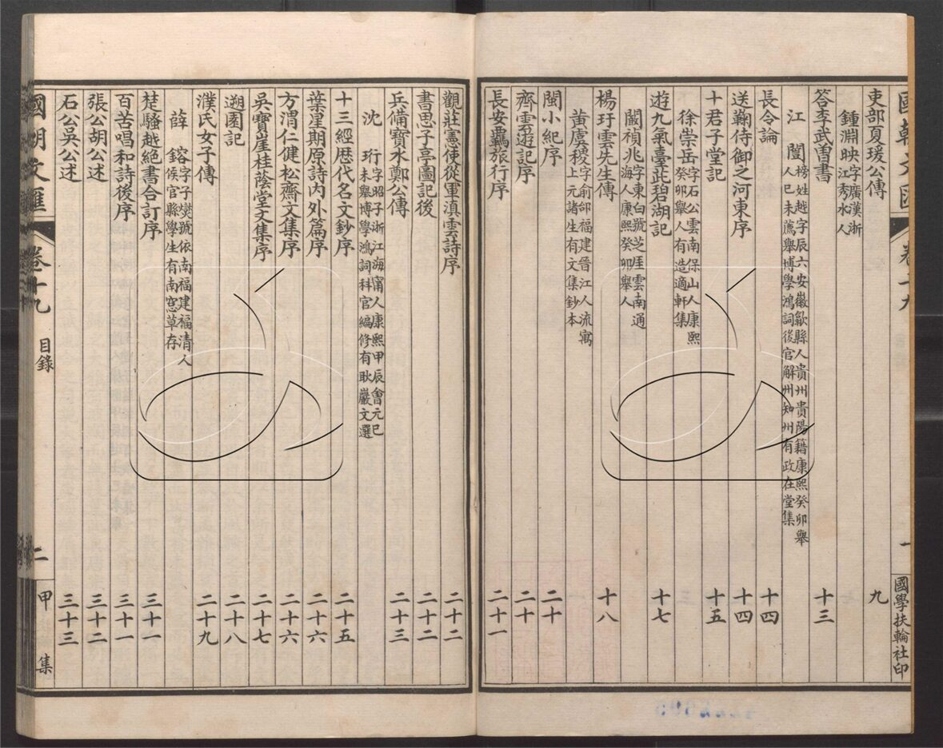 吏部夏瑗公傳 九
鍾淵映 字廣漢浙江秀水人
答李武曾書 十三
江闓 榜姓越字辰六安徽歙縣人貴州貴陽籍康熙癸卯舉人己未薦舉博學鴻詞後官解州知州有政在堂集
長令論 十四
送鞠侍御之河東序 十四
十君子堂記 十五
徐崇岳 字石公雲南保山人康熙癸卯舉人有造適軒集
遊九氣臺茈碧湖記 十七
闞禎兆 字東白號芝厓雲南通海人康熙癸卯舉人
楊玗雲先生傳 十八
黃虞稷 字俞邰福建晉江人流寓上元諸生有文集鈔本
閩小紀序 二十
齊雲遊記序 二十
長安羈旅行序 二十一
國學扶輪社印
國朝文匯 卷十九 目錄 二 甲集
觀莊憲使從軍滇雲詩序 二十二
書思子亭圖記後 二十二
兵備寶水鄭公傳 二十三
沈珩 字昭子浙江海甯人康熙甲辰會元己未舉博學鴻詞科官編修有耿巖文選
十三經歷代名文鈔序 二十五
葉星期原詩內外篇序 二十六
方渭仁健松齋文集序 二十六
吳寶崖桂蔭堂文集序 二十七
遡園記 二十八
濮氏女子傳 二十九
薛鎔 字子燮號依南福建福清人候官縣學生有南窓草存
楚騷越絕書合訂序 三十一
百苦唱和詩後序 三十一
張公胡公述 三十二
石公吳公述 三十三